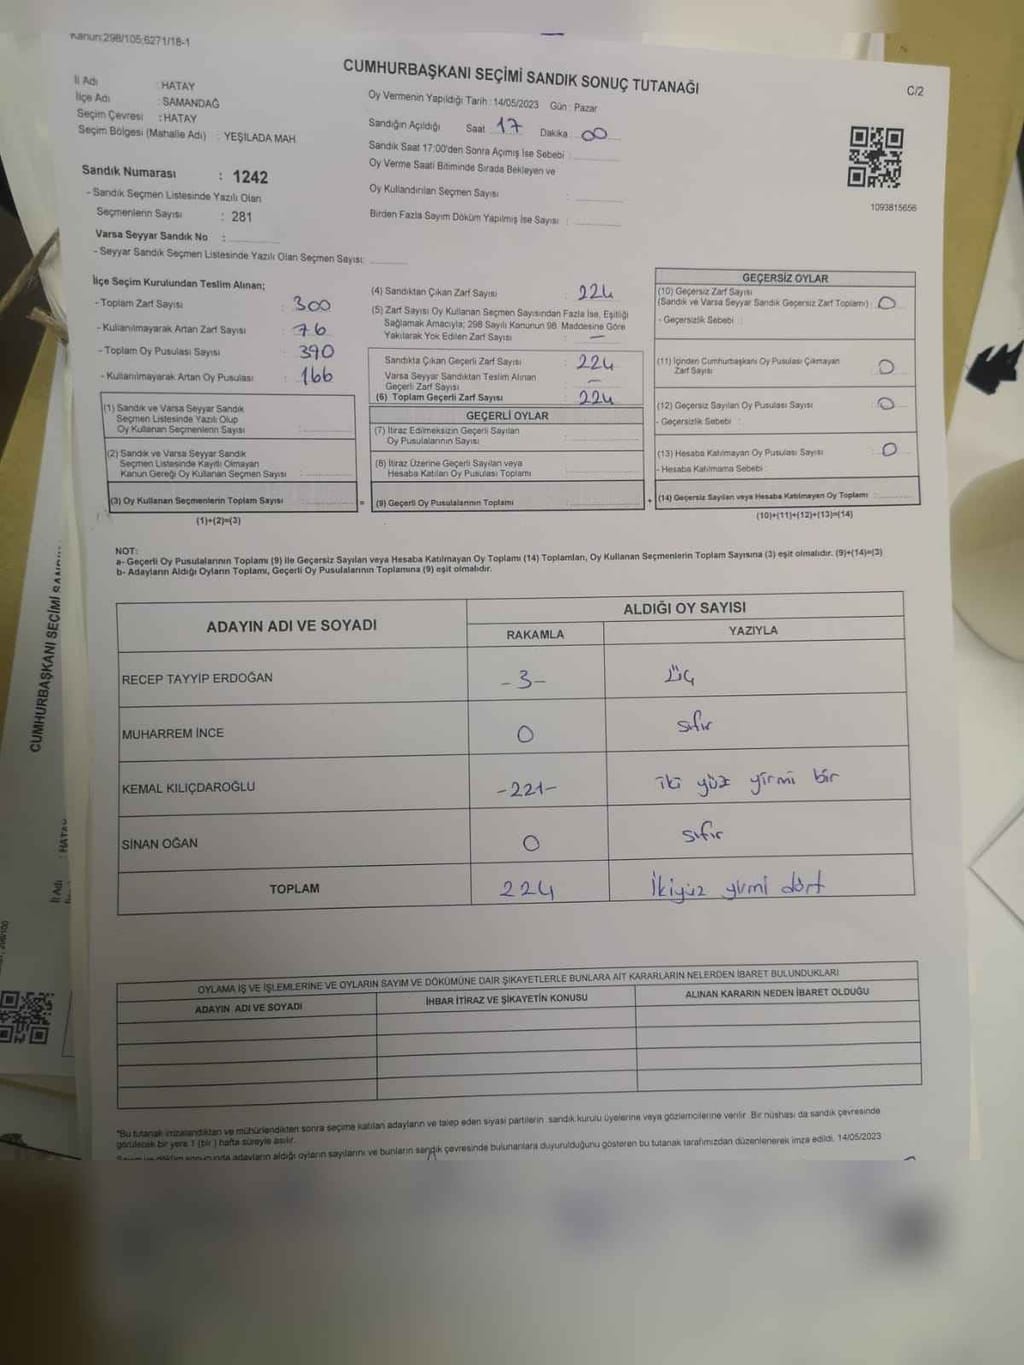 Kanun:298/105;6271/18-1
CUMHURBAŞKANI SEÇİMİ SANDIK SONUÇ TUTANAĞI
C/2
İl Adı : HATAY
İlçe Adı : SAMANDAĞ
Seçim Çevresi : HATAY
Seçim Bölgesi (Mahalle Adı) : YEŞİLADA MAH.
Oy Vermenin Yapıldığı Tarih : 14/05/2023 Gün : Pazar
Sandığın Açıldığı Saat 17 Dakika 00
Sandık Saat 17:00'den Sonra Açımış İse Sebebi :
Oy Verme Saati Bitiminde Sırada Bekleyen ve
Oy Kullandırılan Seçmen Sayısı :
Birden Fazla Sayım Döküm Yapılmış İse Sayısı :
1093815656
Sandık Numarası : 1242
- Sandık Seçmen Listesinde Yazılı Olan
Seçmenlerin Sayısı : 281
Varsa Seyyar Sandık No :
- Seyyar Sandık Seçmen Listesinde Yazılı Olan Seçmen Sayısı:
İlçe Seçim Kurulundan Teslim Alınan;
- Toplam Zarf Sayısı : 300
- Kullanılmayarak Artan Zarf Sayısı : 76
- Toplam Oy Pusulası Sayısı : 390
- Kullanılmayarak Artan Oy Pusulası : 166
(1) Sandık ve Varsa Seyyar Sandık
Seçmen Listesinde Yazılı Olup
Oy Kullanan Seçmenlerin Sayısı :
(2) Sandık ve Varsa Seyyar Sandık
Seçmen Listesinde Kayıtlı Olmayan
Kanun Gereği Oy Kullanan Seçmen Sayısı :
(3) Oy Kullanan Seçmenlerin Toplam Sayısı =
(1)+(2)=(3)
(4) Sandıktan Çıkan Zarf Sayısı : 224
(5) Zarf Sayısı Oy Kullanan Seçmen Sayısından Fazla İse, Eşitliği
Sağlamak Amacıyla; 298 Sayılı Kanunun 98. Maddesine Göre
Yakılarak Yok Edilen Zarf Sayısı : —
Sandıkta Çıkan Geçerli Zarf Sayısı : 224
Varsa Seyyar Sandıktan Teslim Alınan
Geçerli Zarf Sayısı : —
(6) Toplam Geçerli Zarf Sayısı : 224
GEÇERLİ OYLAR
(7) İtiraz Edilmeksizin Geçerli Sayılan
Oy Pusulalarının Sayısı :
(8) İtiraz Üzerine Geçerli Sayılan veya
Hesaba Katılan Oy Pusulası Toplamı :
(9) Geçerli Oy Pusulalarının Toplamı : +
GEÇERSİZ OYLAR
(10) Geçersiz Zarf Sayısı
(Sandık ve Varsa Seyyar Sandık Geçersiz Zarf Toplamı) : 0
- Geçersizlik Sebebi :
(11) İçinden Cumhurbaşkanı Oy Pusulası Çıkmayan
Zarf Sayısı : 0
(12) Geçersiz Sayılan Oy Pusulası Sayısı : 0
- Geçersizlik Sebebi :
(13) Hesaba Katılmayan Oy Pusulası Sayısı : 0
- Hesaba Katılmama Sebebi :
(14) Geçersiz Sayılan veya Hesaba Katılmayan Oy Toplamı :
(10)+(11)+(12)+(13)=(14)
NOT:
a- Geçerli Oy Pusulalarının Toplamı (9) ile Geçersiz Sayılan veya Hesaba Katılmayan Oy Toplamı (14) Toplamları, Oy Kullanan Seçmenlerin Toplam Sayısına (3) eşit olmalıdır. (9)+(14)=(3)
b- Adayların Aldığı Oyların Toplamı, Geçerli Oy Pusulalarının Toplamına (9) eşit olmalıdır.
ADAYIN ADI VE SOYADI
ALDIĞI OY SAYISI
RAKAMLA YAZIYLA
RECEP TAYYİP ERDOĞAN -3- üç
MUHARREM İNCE 0 sıfır
KEMAL KILIÇDAROĞLU -221- iki yüz yirmi bir
SİNAN OĞAN 0 sıfır
TOPLAM 224 İkiyüz yirmi dört
OYLAMA İŞ VE İŞLEMLERİNE VE OYLARIN SAYIM VE DÖKÜMÜNE DAİR ŞİKAYETLERLE BUNLARA AİT KARARLARIN NELERDEN İBARET BULUNDUKLARI
ADAYIN ADI VE SOYADI İHBAR İTİRAZ VE ŞİKAYETİN KONUSU ALINAN KARARIN NEDEN İBARET OLDUĞU
*Bu tutanak imzalandıktan ve mühürlendikten sonra seçime katılan adayların ve talep eden siyasi partilerin sandık kurulu üyelerine veya gözlemcilerine verilir. Bir nüshası da sandık çevresinde
görülecek bir yere 1 (bir) hafta süreyle asılır.
adayların aldığı oyların sayılarını ve bunların sandık çevresinde bulunanlara duyurulduğunu gösteren bu tutanak tarafımızdan düzenlenerek imza edildi. 14/05/2023
CUMHURBAŞKANI SEÇİMİ
İl Adı : HATAY